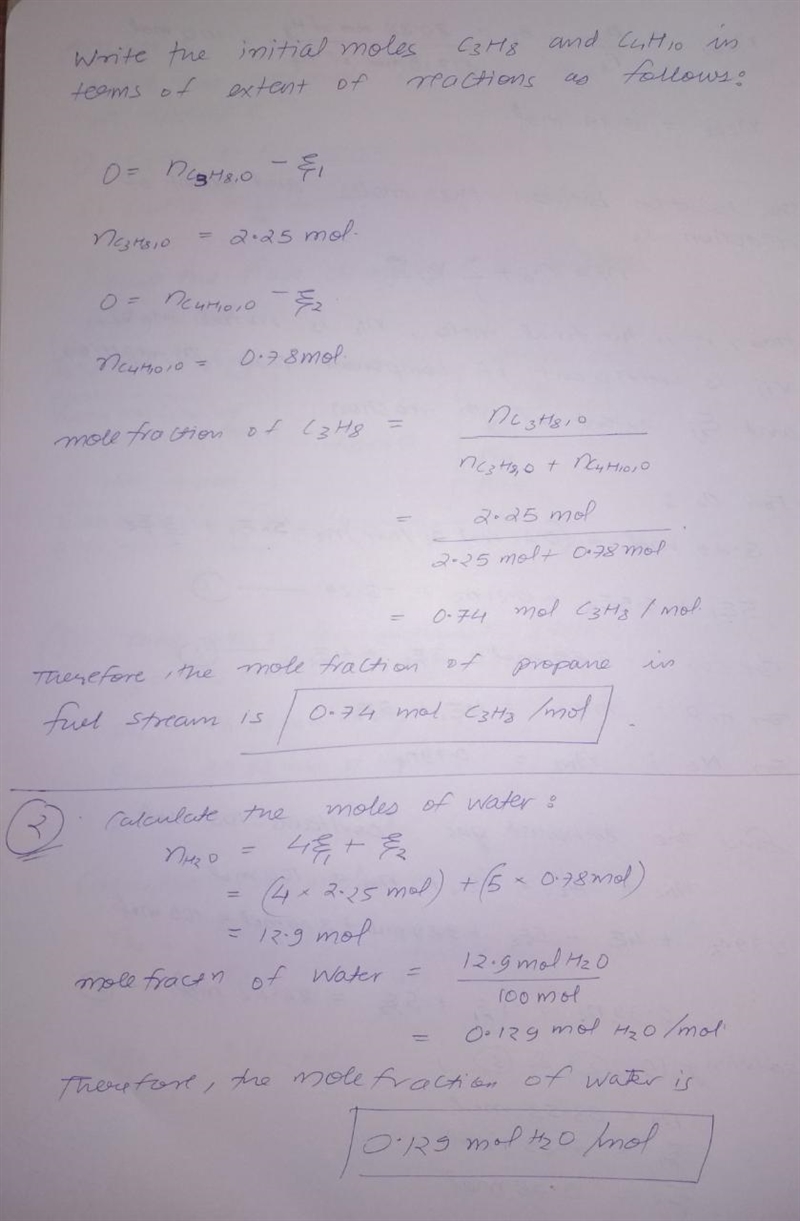 Write the initial moles C3H8 and C4H10 in
terms of extent of reactions as follows:
0 = nC3H8,0 - ξ1
nC3H8,0 = 2.25 mol.
0 = nC4H10,0 - ξ2
nC4H10,0 = 0.78 mol.
mole fraction of C3H8 = nC3H8,0 / nC3H8,0 + nC4H10,0
= 2.25 mol / 2.25 mol + 0.78 mol.
= 0.74 mol C3H8 / mol.
Therefore, the mole fraction of propane in
fuel stream is 0.74 mol C3H8 /mol.
2. Calculate the moles of water:
nH2O = 4ξ1 + ξ2
= (4 × 2.25 mol) + (5 × 0.78 mol)
= 12.9 mol
mole fractn of water = 12.9 mol H2O / 100 mol
= 0.129 mol H2O /mol.
Therefore, the mole fraction of water is
0.129 mol H2O /mol